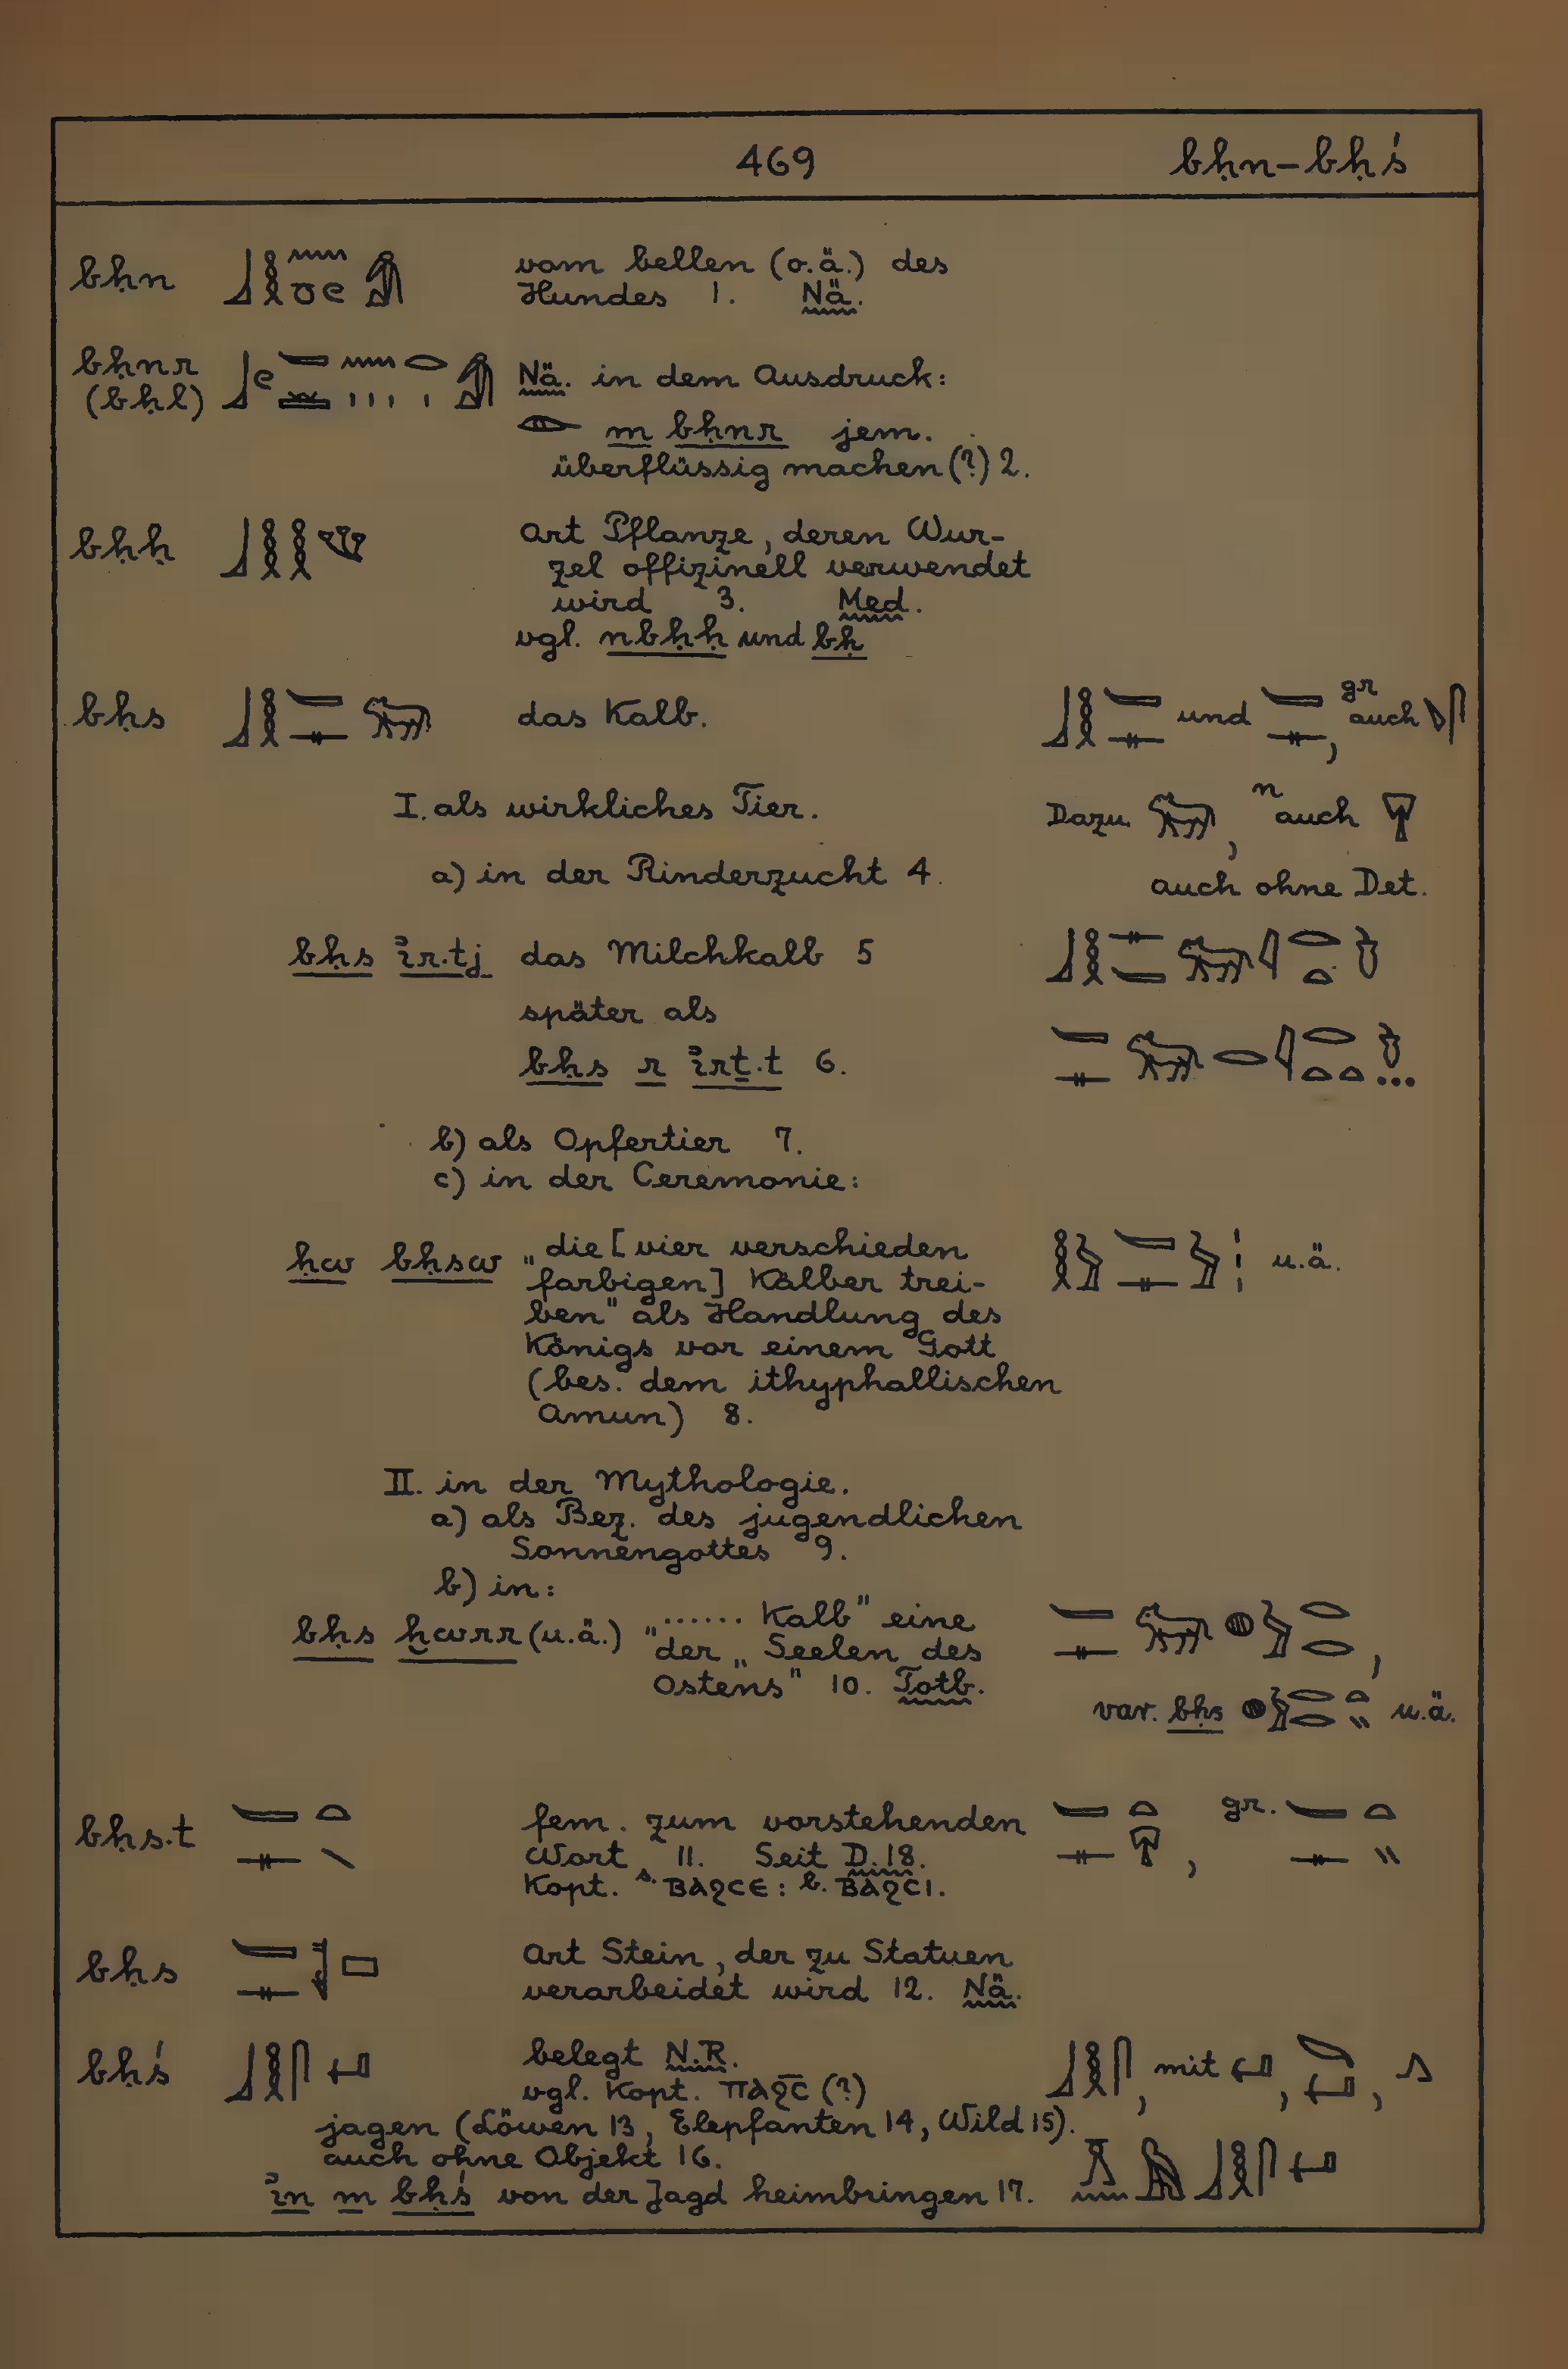 469 bḥn–bḥś
bḥn vom bellen (o.ä.) des
Hundes 1. Nä.
bḥnr
(bḥl)
Nä. in dem Ausdruck:
m bḥnr jem.
überflüssig machen (?) 2.
bḥḥ Art Pflanze, deren Wur-
zel offizinell verwendet
wird 3. Med.
vgl. nbḥḥ und bḥ
bḥs das Kalb. und , gr auch
I. als wirkliches Tier. Dazu , n auch
a) in der Rinderzucht 4. auch ohne Det.
bḥs ỉr.tj das Milchkalb 5
später als
bḥs r ỉrṯ.t 6.
b) als Opfertier 7.
c) in der Ceremonie:
ḥw bḥsw „die [vier verschieden u.ä.
farbigen] Kälber trei-
ben" als Handlung des
Königs vor einem Gott
(bes. dem ithyphallischen
Amun) 8.
II. in der Mythologie.
a) als Bez. des jugendlichen
Sonnengottes 9.
b) in:
bḥs ḫwrr (u.ä.) „...... Kalb" eine
der „Seelen des
Ostens" 10. Totb. var. bḥs u.ä.
bḥs.t fem. zum vorstehenden , gr.
Wort 11. Seit D.18.
Kopt. s. ⲃⲁϩⲥⲉ : b. ⲃⲁϩⲥⲓ.
bḥs Art Stein, der zu Statuen
verarbeidet wird 12. Nä.
bḥś belegt N.R. , mit , ,
vgl. Kopt. ⲡⲁϩⲥ̄ (?)
jagen (Löwen 13, Elepfanten 14, Wild 15).
auch ohne Objekt 16.
ỉn m bḥś von der Jagd heimbringen 17.